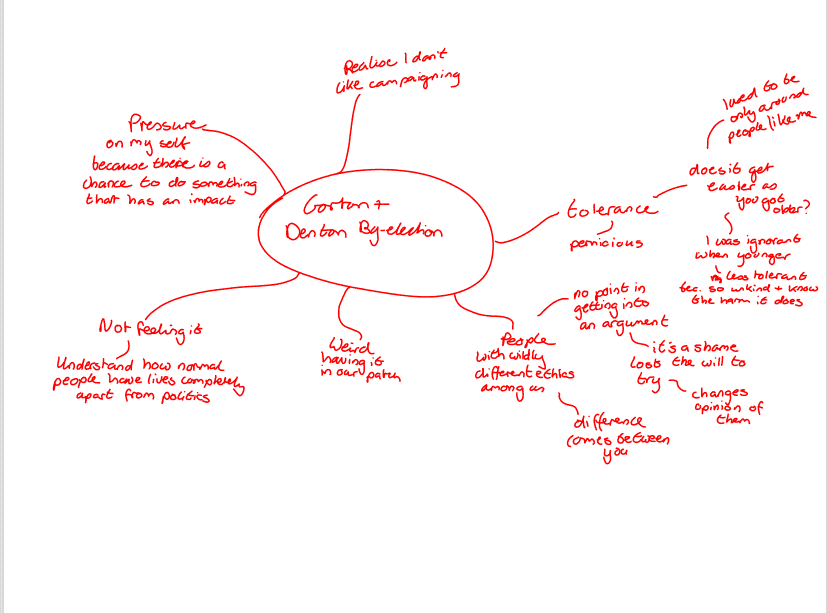 Realise I don't
like campaigning
Pressure
on my self
because there is a
chance to do something
that has an impact
Gorton +
Denton By-election
tolerance
pernicious
does it get
easier as
you got
older?
I used to be
only around
people like me
I was ignorant
when younger
less tolerant
bec. so unkind + know
the harm it does
People
with wildly
different ethics
among us
no point in
getting into
an argument
it's a shame
lost the will to
try
changes
opinion of
them
difference
comes between
you
Weird
having it
in our patch
Not feeling it
Understand how normal
people have lives completely
apart from politics